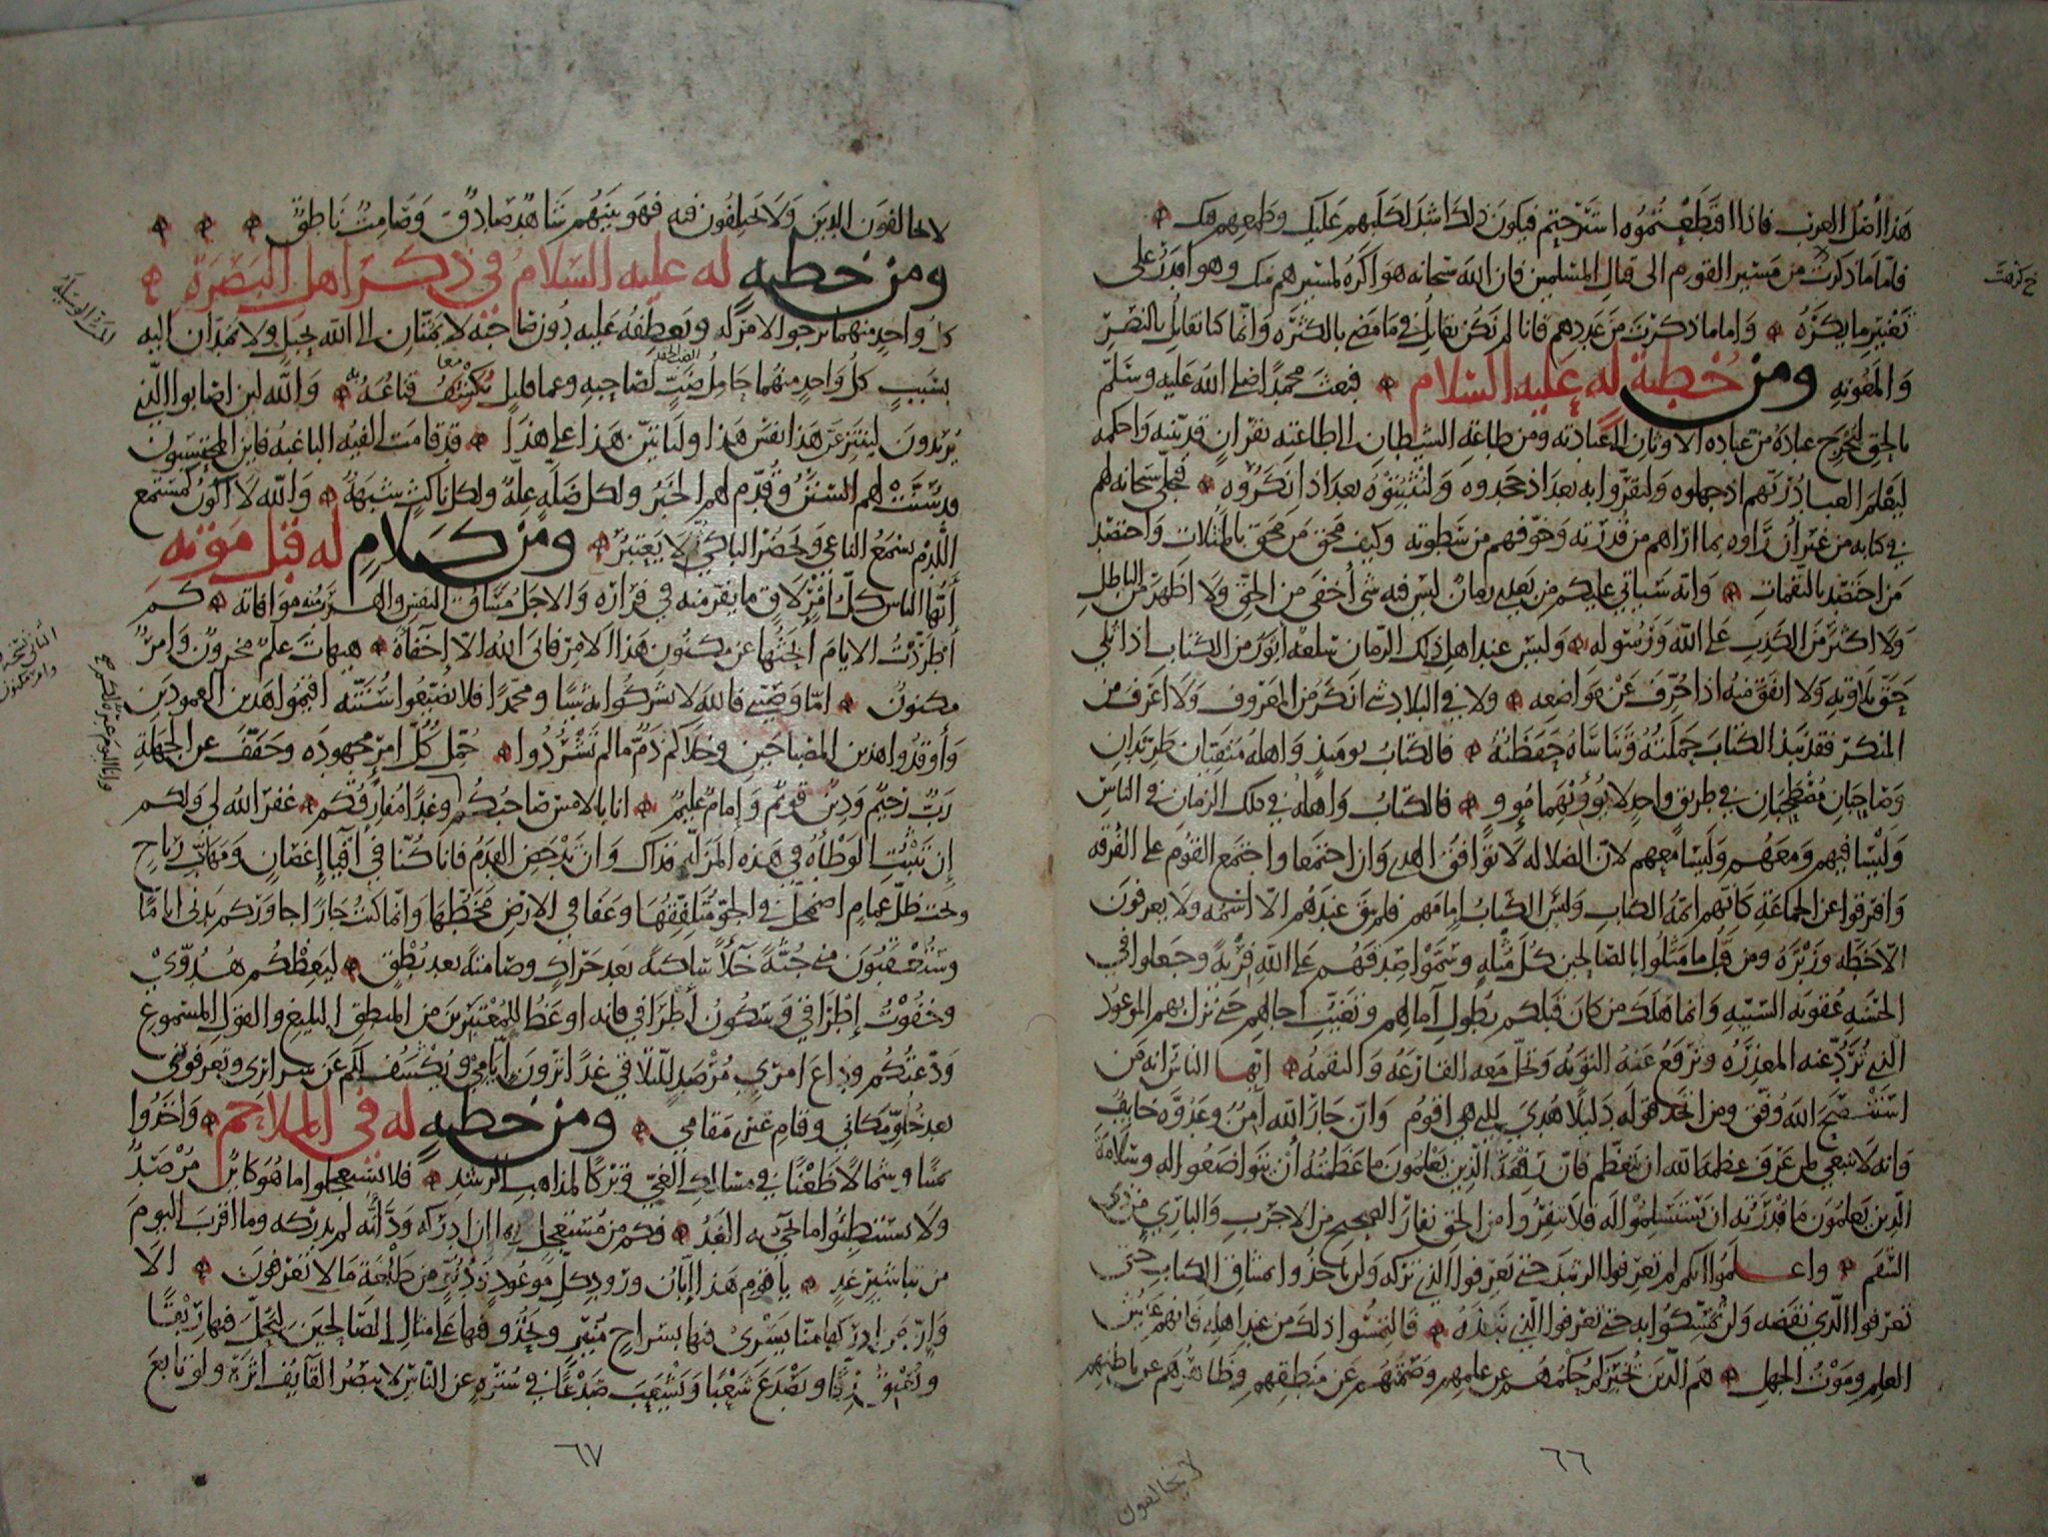 هذا أصل العرب فاذا اقتطعتموه استرحتم فيكون ذلك اشد لكلبهم عليك وطمعهم فيك
فاما ما ذكرت من مسير القوم الى قتال المسلمين فان الله سبحانه هو اكره لمسيرهم منك وهو اقدر على
تغيير ما يكره واما ما ذكرت من عددهم فانا لم نكن نقاتل في ما مضى بالكثرة وانما كنا نقاتل بالنصر
والمعونة ومن خطبة له عليه السلام فبعث محمدا صلى الله عليه وسلم
بالحق ليخرج عباده من عبادة الاوثان الى عبادته ومن طاعة الشيطان الى طاعته بقران قد بينه واحكمه
ليعلم العباد ربهم اذ جهلوه وليقروا به بعد اذ جحدوه وليثبتوه بعد اذ انكروه فتجلى سبحانه لهم
في كتابه من غير أن راوه بما اراهم من قدرته وخوفهم من سطوته وكيف محق من محق بالمثلات واحتصد
من احتصد بالنقمات وانه سياتي عليكم من بعدي زمان ليس فيه شيء أخفى من الحق ولا اظهر من الباطل
ولا اكثر من الكذب على الله ورسوله وليس عند اهل ذلك الزمان سلعة ابور من الكتاب اذا تلي
حق تلاوته ولا انفق منه اذا حرف عن مواضعه ولا في البلاد شيء انكر من المعروف ولا اعرف من
المنكر فقد نبذ الكتاب حملته وتناساه حفظته فالكتاب يومئذ واهله منفيان طريدان
وصاحبان مصطحبان في طريق واحد لا يؤويهما مؤو فالكتاب واهله في ذلك الزمان في الناس
وليسا فيهم ومعهم وليسا معهم لان الضلالة لا توافق الهدى وان اجتمعا واجتمع القوم على الفرقة
وافترقوا عن الجماعة كانهم ائمة الكتاب وليس الكتاب امامهم فلم يبق عندهم الا اسمه ولا يعرفون
الا خطه وزبره ومن قبل ما مثلوا بالصالحين كل مثلة وسموا صدقهم على الله فرية وجعلوا في
الحسنة عقوبة السيئة وانما هلك من كان قبلكم بطول آمالهم وتغيب اجالهم حتى نزل بهم الموعود
الذي ترد عنه المعذرة وترفع عنه التوبة وتحل معه القارعة والنقمة ايها الناس انه من
استنصح الله وفق ومن اتخذ قوله دليلا هدي للتي هي اقوم وان جار الله آمن وعدوه خايف
وانه لا ينبغي لمن عرف عظمة الله ان يتعظم فان رفعة الذين يعلمون ما عظمته أن يتواضعوا له وسلامة
الذين يعلمون ما قدرته ان يستسلموا له فلا تنفروا من الحق نفار الصحيح من الاجرب والباري من ذي
السقم واعلموا انكم لن تعرفوا الرشد حتى تعرفوا الذي تركه ولن تاخذوا بميثاق الكتاب حتى
تعرفوا الذي نقضه ولن تمسكوا به حتى تعرفوا الذي نبذه فالتمسوا ذلك من عند اهله فانهم عيش
العلم وموت الجهل هم الذين يخبركم حكمهم عن علمهم وصمتهم عن منطقهم وظاهرهم عن باطنهم
لا يخالفون
٦٦
لا يخالفون الدين ولا يختلفون فيه فهو بينهم شاهد صادق وصامت ناطق
ومن خطبه له عليه السلام في ذكر اهل البصرة
كل واحد منهما يرجوا الامر له ويعطفه عليه دون صاحبه لا يمتان الى الله بحبل ولا يمدان اليه
بسبب كل واحد منهما حامل ضب لصاحبه وعما قليل يكشف قناعه به والله لين اصابوا الذي
يريدون لينتزعن هذا نفس هذا ولياتين هذا على هذا قد قامت الفية الباغية فاين المحتسبون
قد سنت لهم السنن وقدم لهم الخبر ولكل ضلة علة ولكل ناكث شبهة والله لا أكون كمستمع
اللدم يسمع الناعي ويحضر الباكي ثم لا يعتبر ومن كلام له قبل موته
أيها الناس كل امرئ لاق ما يفر منه في فراره والاجل مساق النفس والهرب منه موافاته كم
أطردت الايام ابحثها عن مكنون هذا الامر فابى الله الا إخفاه هيهات علم مخزون وامر
مكنون اما وصيتي فالله لا تشركوا به شيئا ومحمدا فلا تضيعوا سنته اقيموا هذين العمودين
وأوقدوا هذين المصباحين وخلاكم ذم ما لم تشردوا حمل كل امرئ مجهوده وخفف عن الجهلة
رب رحيم ودين قويم وإمام عليم انا بالامس صاحبكم وغدا مفارقكم غفر الله لي ولكم
إن تثبت الوطأة في هذه المزلة فذاك وان تدحض القدم فانا كنا في أفياء اغصان ومهاب رياح
وتحت ظل غمام اضمحل في الجو متلفقها وعفا في الارض مخطها وانما كنت جارا جاوركم بدني اياما
وستعقبون مني جثة خلاء ساكنة بعد حراك وصامتة بعد نطق ليعظكم هدوي
وخفوت إطراقي وسكون أطرافي فانه اوعظ للمعتبرين من المنطق البليغ والقول المسموع
ودعتكم وداع امرئ مرصد للتلاقي غدا ترون ايامي ويكشف لكم عن سرائري وتعرفونني
بعد خلو مكاني وقام غيري مقامي ومن خطبه له في الملاحم واخذوا
يمينا وشمالا ظعنا في مسالك الغي وتركا لمذاهب الرشد فلا تستعجلوا ما هو كائن مرصد
ولا تستبطئوا ما يجيء به الغد فكم من مستعجل بما ان ادركه ود أنه لم يدركه وما اقرب اليوم
من تباشير غد يا قوم هذا إبان ورود كل موعود ودنو من طلعة ما لا تعرفون الا
وان من ادركها منا يسري فيها بسراج منير ويحذو فيها على مثال الصالحين ليحل فيها ربقا
ويعتق رقا ويصدع شعبا ويشعب صدعا في سترة عن الناس لا يبصر القايف اثره ولو تابع
٦٧